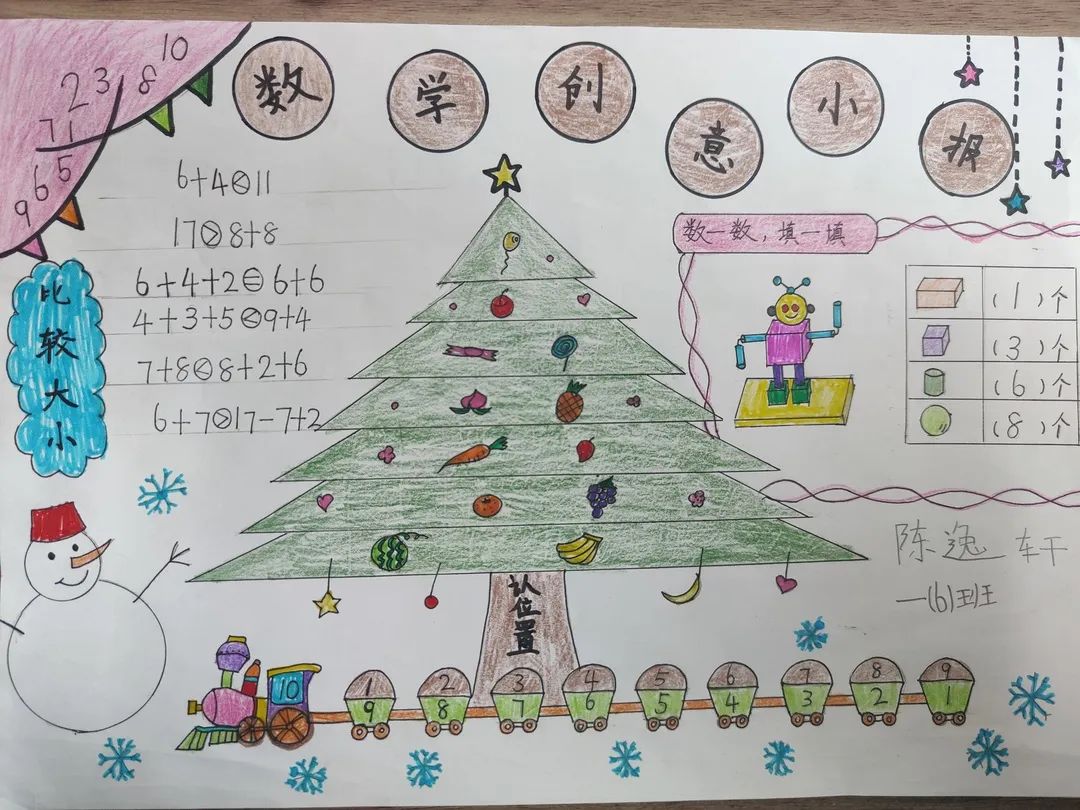 数学创意小报
2 3 8 10
7 1
9 6 5
6+4<11
17>8+8
6+4+2=6+6
4+3+5<9+4
7+8<8+2+6
6+7>17-7+2
比较大小
数一数，填一填
（1）个
（3）个
（6）个
（8）个
陈逸轩
一(6)班
认位置
10 1 2 3 4 5 6 7 8 9
9 8 7 6 5 4 3 2 1